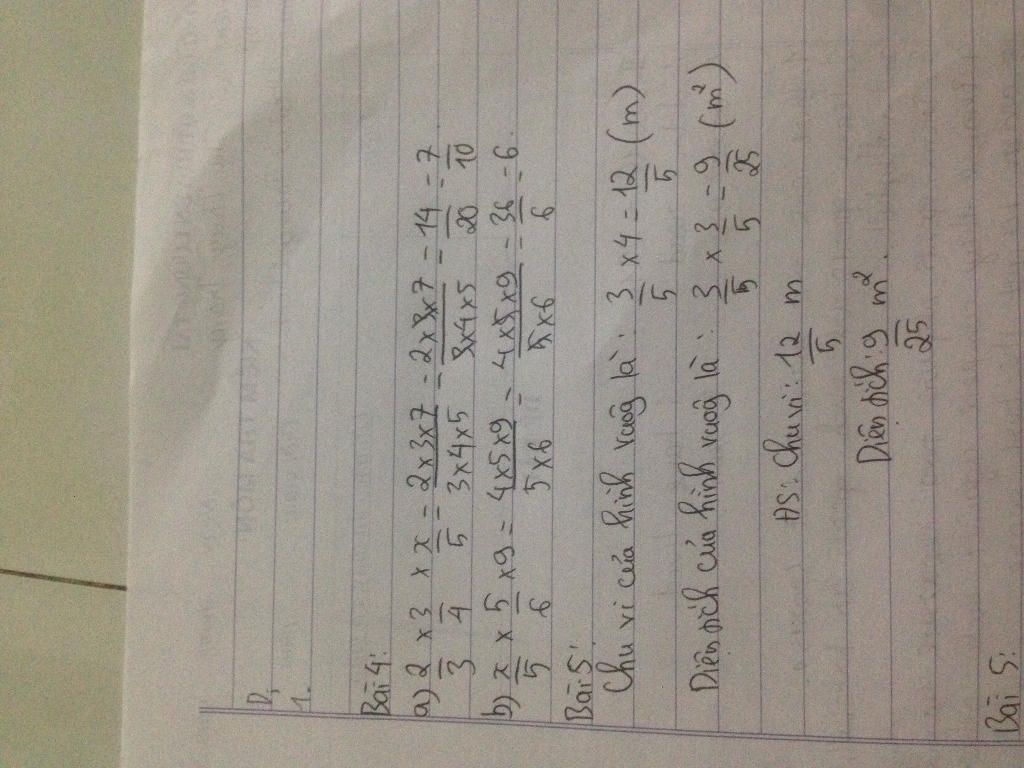 D,
1.
Bài 4:
a) 2/3 x 3/4 x x/5 = 2x3x7/3x4x5 = 2x3x7/3x4x5 = 14/20 = 7/10
b) x/5 x 5/6 x 9 = 4x5x9/5x6 = 4x5x9/5x6 = 36/6 = 6.
Bài 5:
Chu vi của hình vuông là: 3/5 x 4 = 12/5 (m)
Diện tích của hình vuông là: 3/5 x 3/5 = 9/25 (m²)
ĐS: Chu vi: 12/5 m
Diện tích: 9/25 m².
Bài 5: